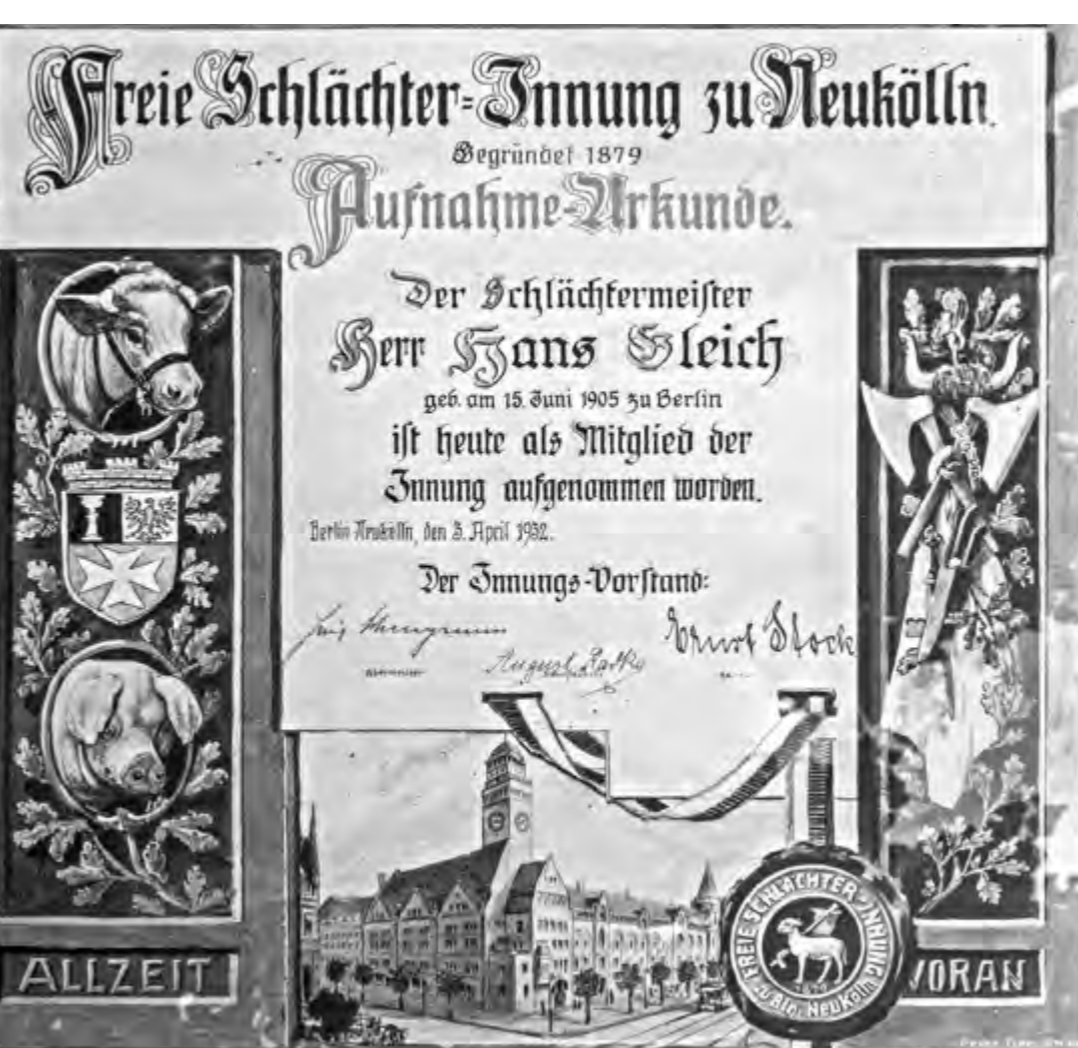 Freie Schlächter-Innung zu Neukölln.
Gegründet 1879
Aufnahme-Urkunde.
Der Schlächtermeister
Herr Hans Gleich
geb. am 15. Juni 1905 zu Berlin
ist heute als Mitglied der
Innung aufgenommen worden.
Berlin Neukölln, den 3. April 1932.
Der Innungs-Vorstand:
August
Ernst Stock
ALLZEIT
VORAN
FREIE SCHLÄCHTER-INNUNG
zu Bln. NEUKÖLLN
1879